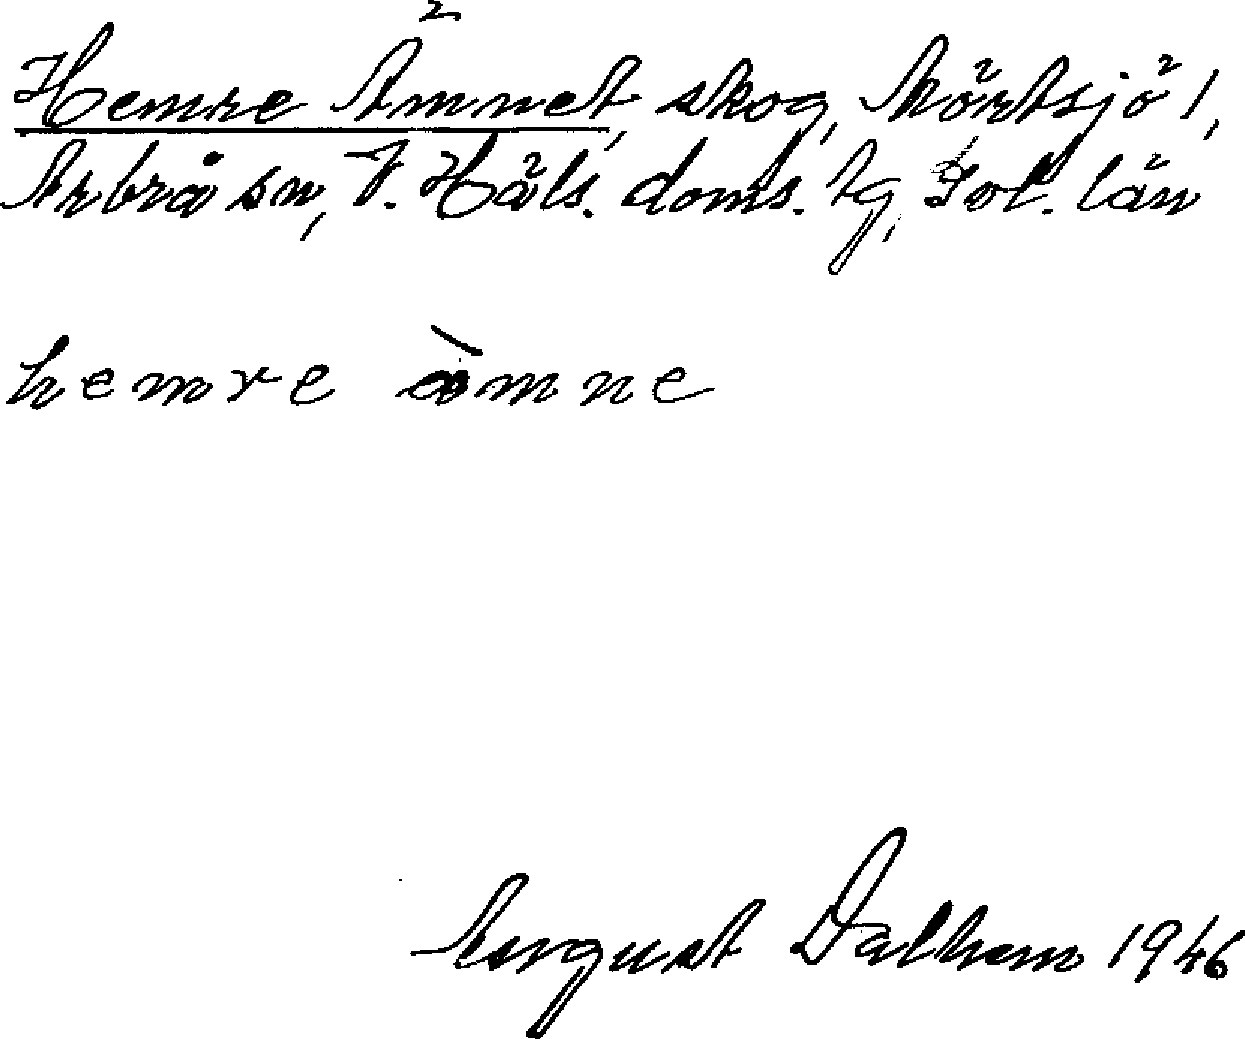 Hemre Ämnet, skog, Mörtsjö 1,
Arbrå sn, V. Häls. doms. tg, Gvl. län
hemre ämne
August Dalhem 1946